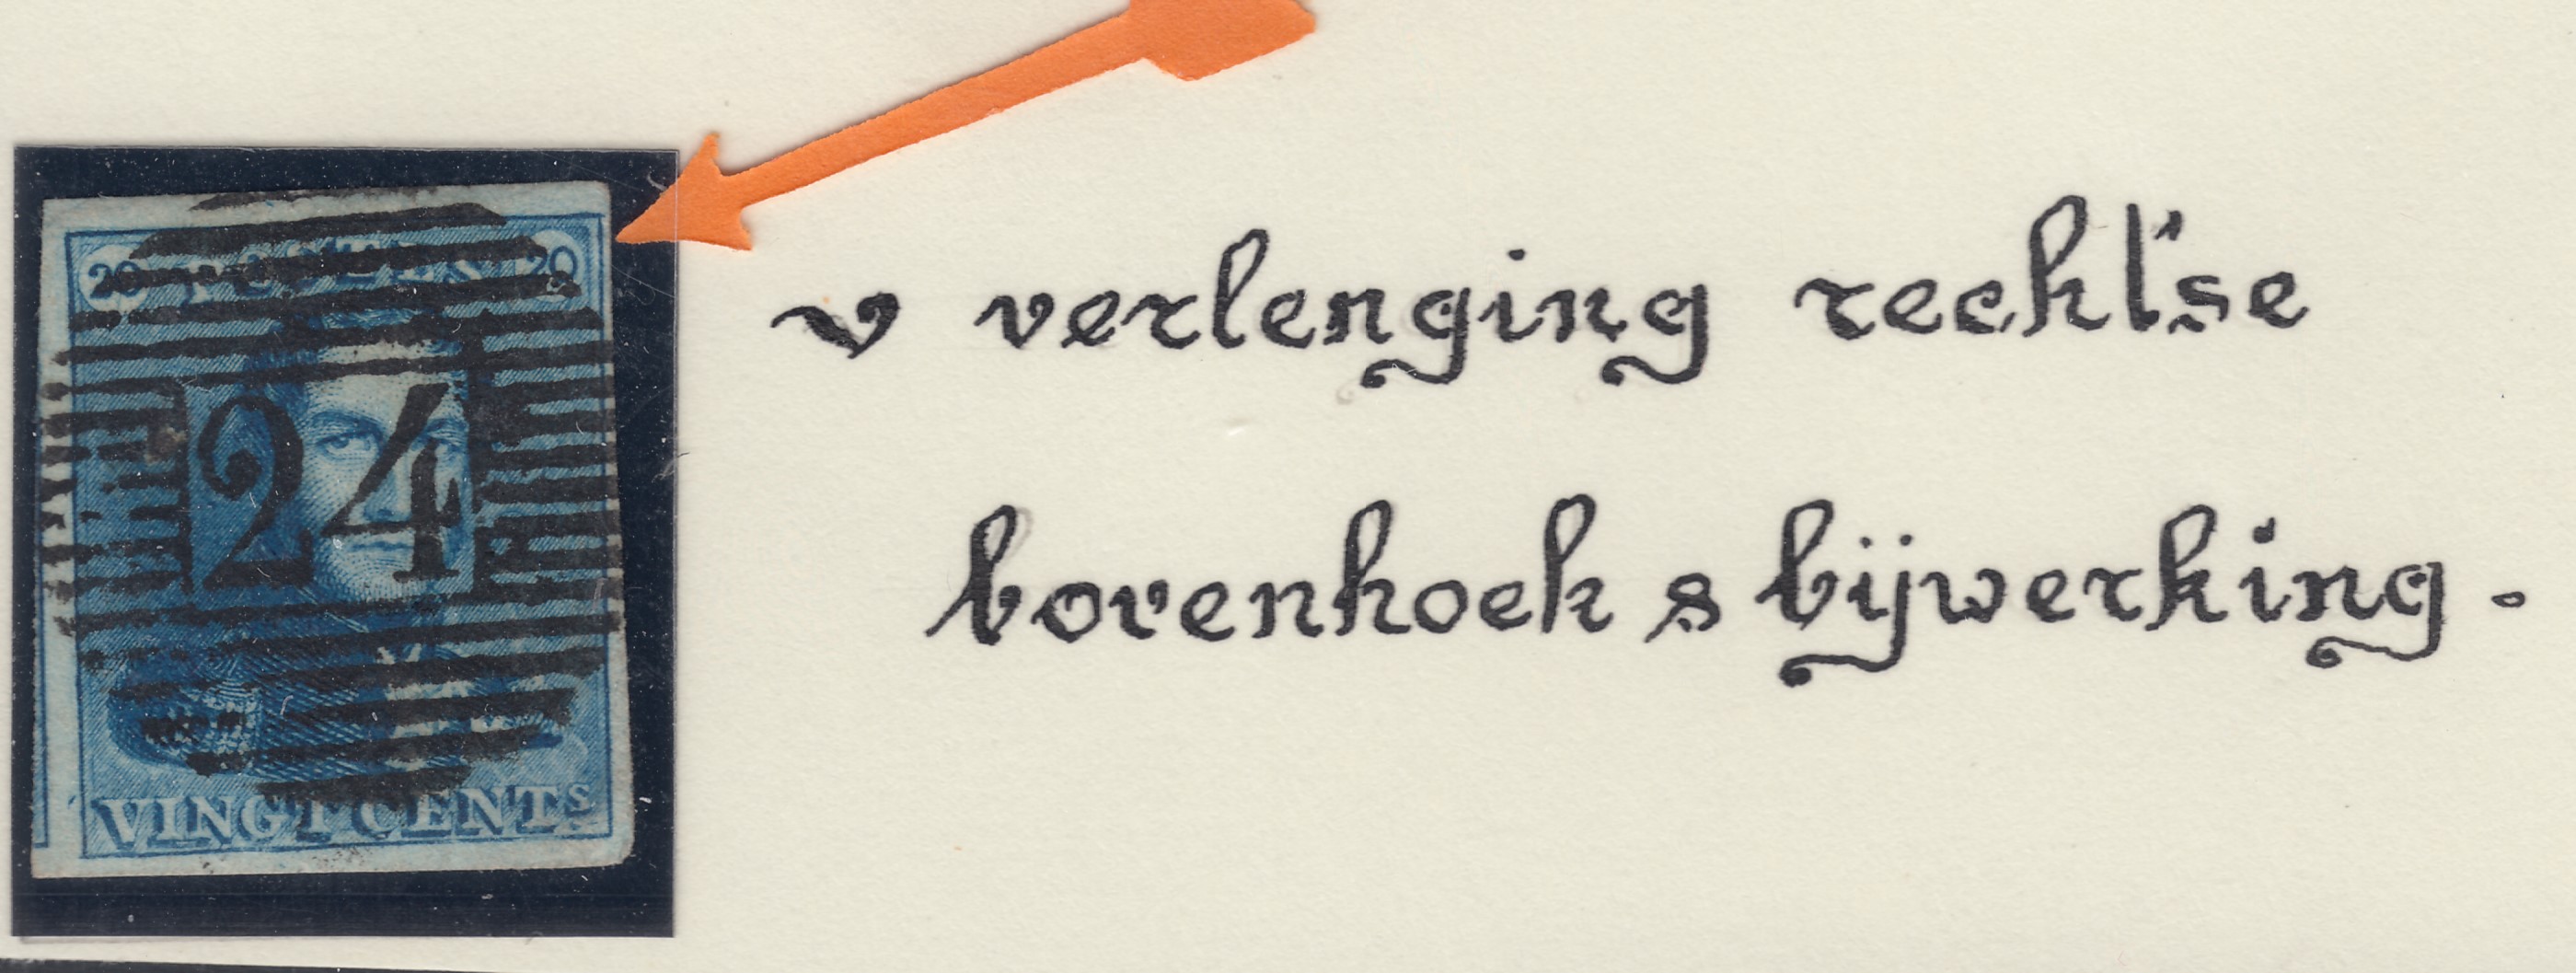 20 POSTES 20
24
VINGT CENTS
v verlenging recht'se
bovenhoek & bijwerking.